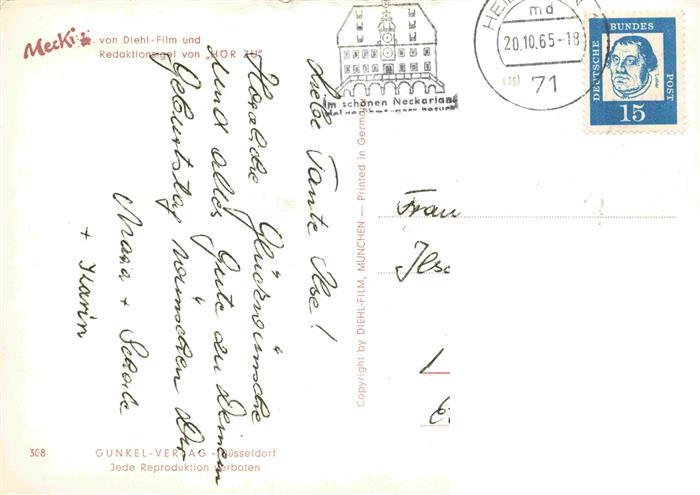 Mecki von Diehl-Film und
Redaktionsigel von „HÖR ZU"
Liebe Tante Ilse!
Herzliche Glückwünsche
und alles Gute zu Deinem
Geburtstag wünschen Dir
Maria +
+ Karin
308
GUNKEL-VERLAG - Düsseldorf
Jede Reproduktion verboten
Copyright by DIEHL-FILM, MÜNCHEN — Printed in Germany
Im schönen Neckarland
md
20.10.65-18
71
DEUTSCHE BUNDES POST
15
Frau
Ilse